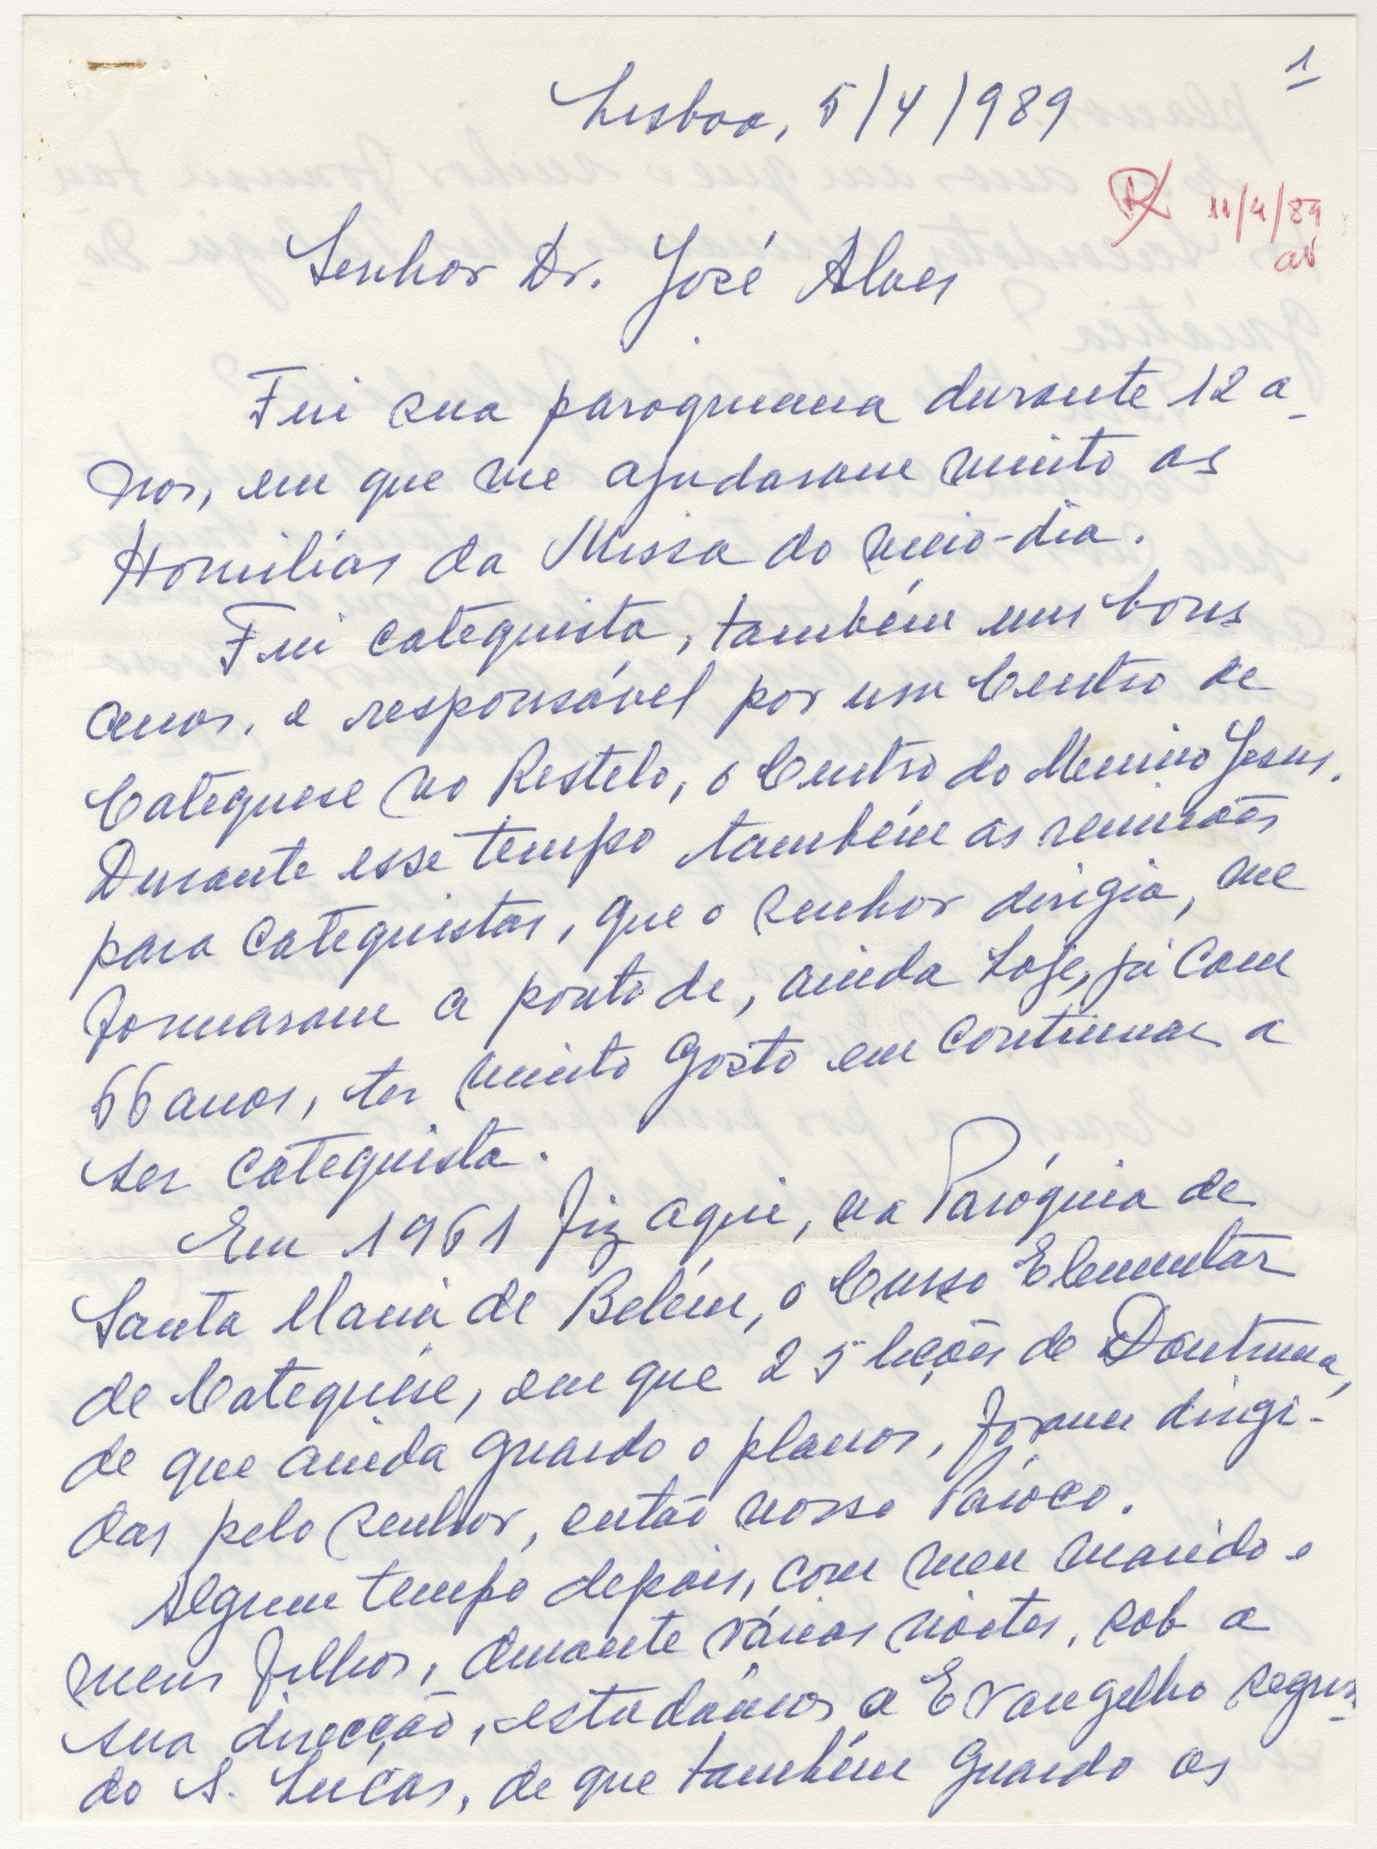 1
Lisboa, 5/4/989
R 11/4/89
Senhor Dr. José Alves
Fui sua paroquiana durante 12 a-
nos, em que me ajudaram muito as
Homilías da Missa do meio-dia.
Fui catequista, também uns bons
anos, e responsável por um Centro de
Catequese no Restelo, o Centro do Menino Jesus.
Durante esse tempo também as reuniões
para catequistas, que o senhor dirigia, me
formaram a ponto de, ainda hoje, já com
66 anos, ter muito gosto em continuar a
ser catequista.
Em 1961 fiz aqui, na Paróquia de
Santa Maria de Belém, o Curso Elementar
de Catequese, em que 25 lições de Doutrina,
de que ainda guardo o planos, foram dirigi-
das pelo senhor, então nosso Pároco.
Algum tempo depois, com meu marido e
meus filhos, durante várias noites, sob a
sua direcção, estudámos o Evangelho segun-
do S. Lucas, de que também guardo os